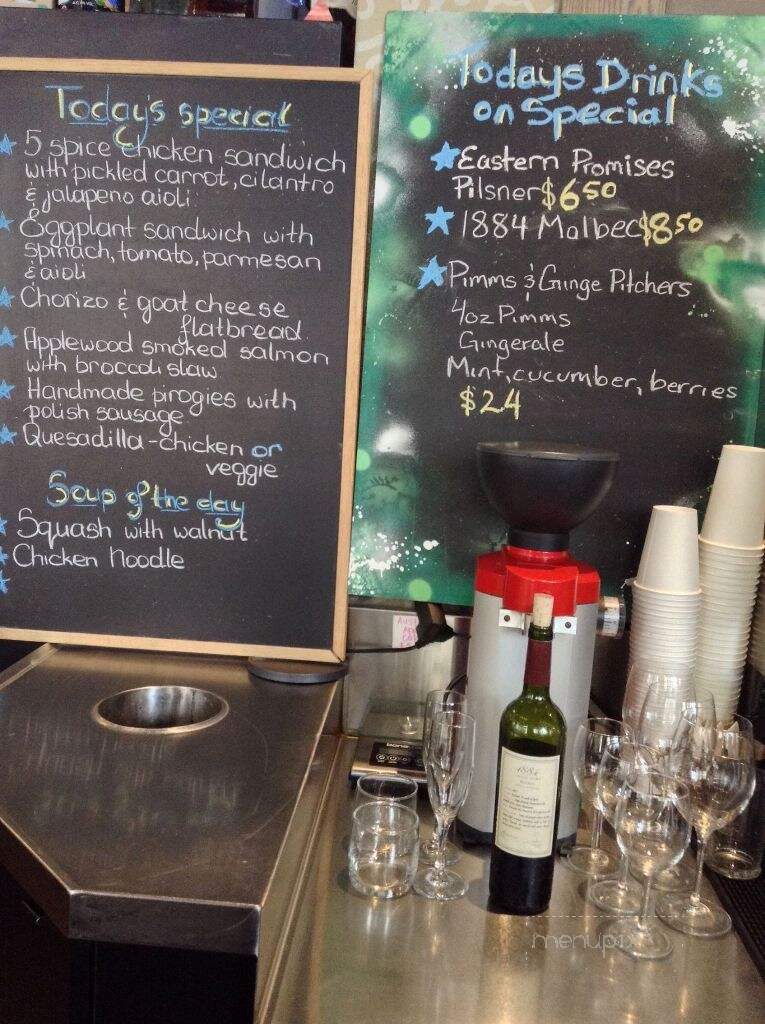 Today's special
5 spice chicken sandwich
with pickled carrot, cilantro
& jalapeno aioli
Eggplant sandwich with
spinach, tomato, parmesan
& aioli
Chorizo & goat cheese
flatbread
Applewood smoked salmon
with broccoli slaw
Handmade pirogies with
polish sausage
Quesadilla - chicken or
veggie
Soup of the day
Squash with walnut
Chicken Noodle
Todays Drinks
on Special
Eastern Promises
Pilsner $6.50
1884 Malbec $8.50
Pimms & Ginge Pitchers
4oz Pimms
Gingerale
Mint, cucumber, berries
$24
1884
menupix